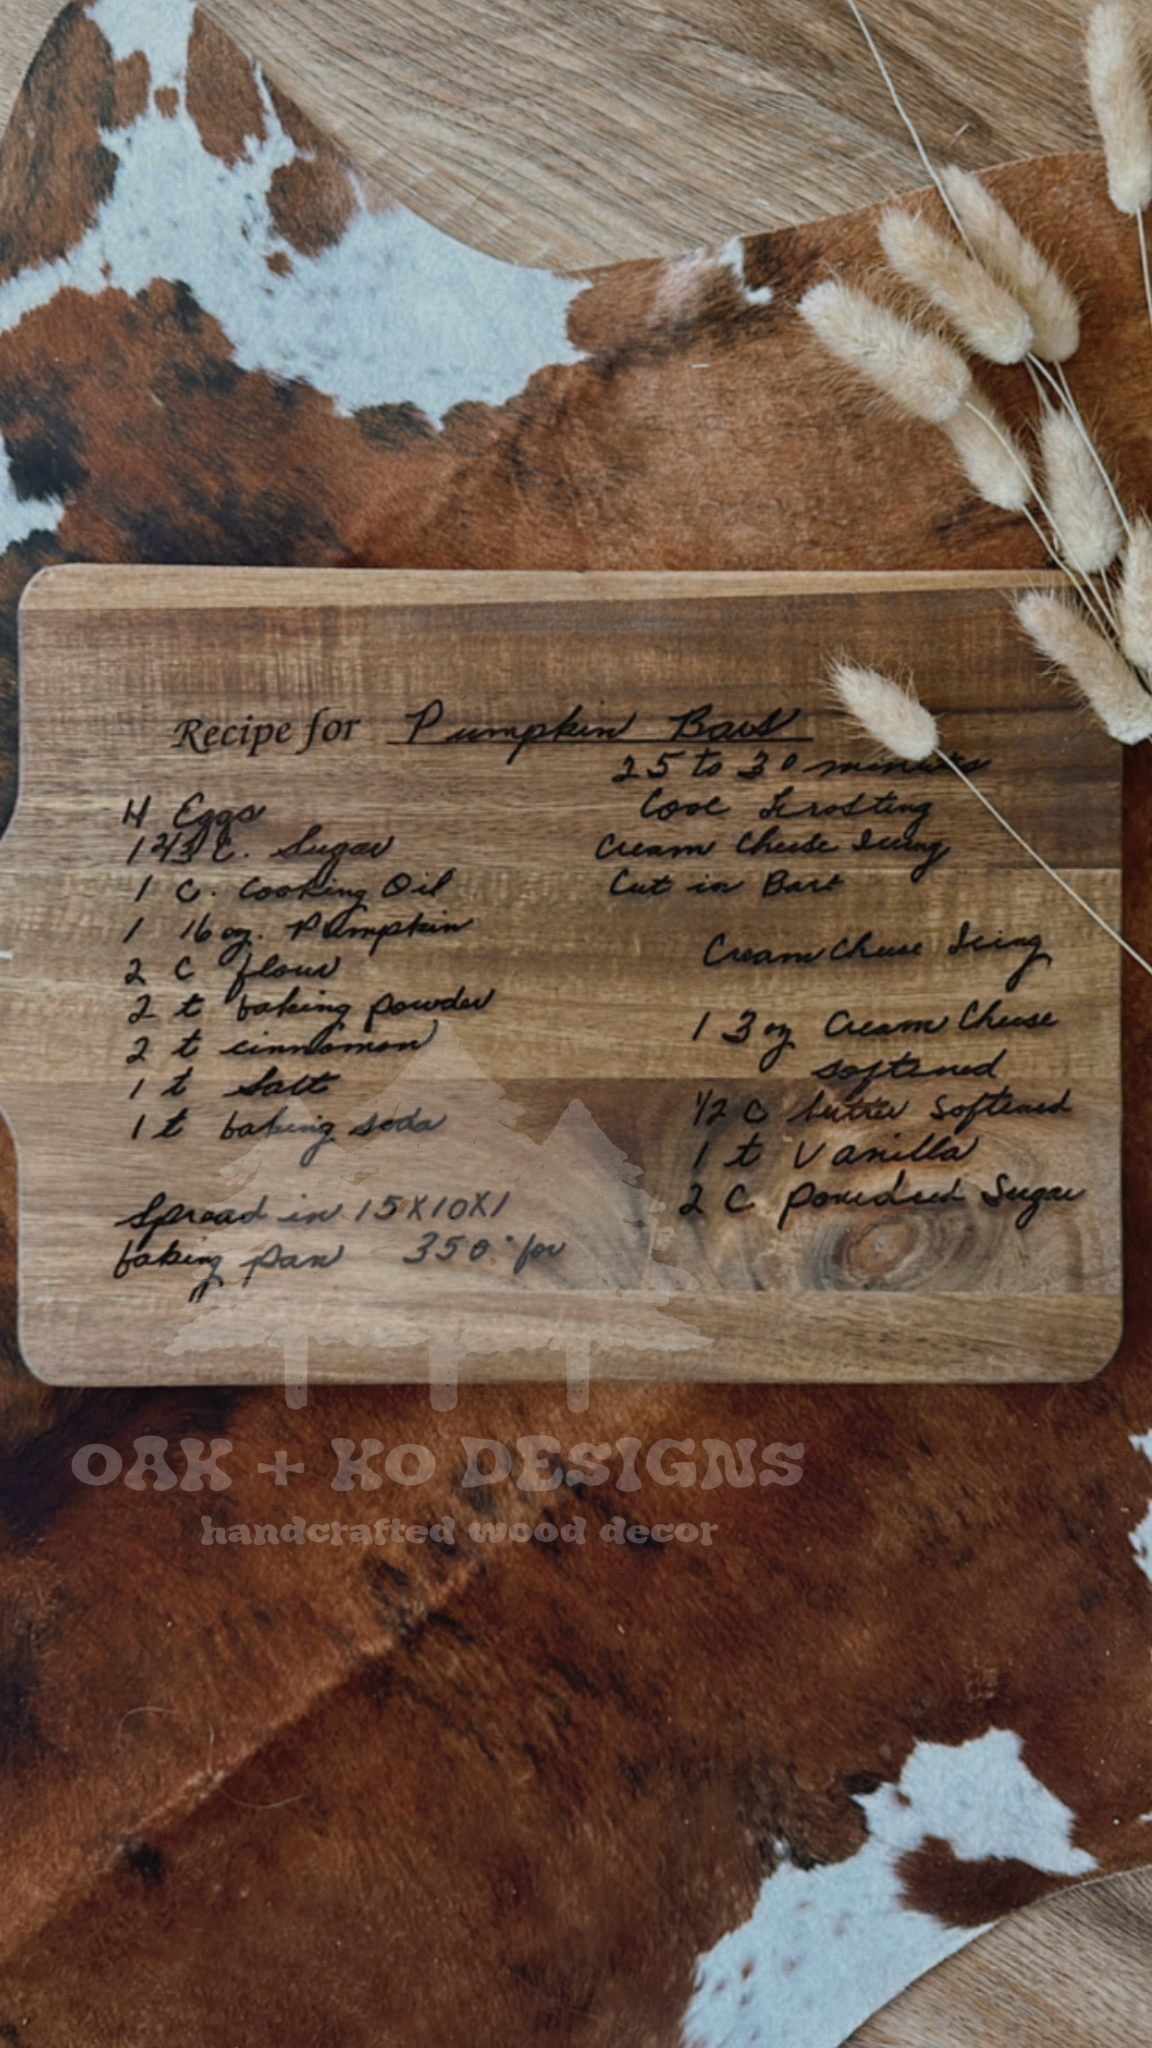 Recipe for Pumpkin Bars
4 Eggs
1 2/3 C. Sugar
1 C. Cooking Oil
1 16 oz. Pumpkin
2 C flour
2 t baking powder
2 t cinnamon
1 t Salt
1 t baking soda
Spread in 15X10X1
baking pan 350° for
25 to 30 minutes
Cool Frosting
Cream Cheese Icing
Cut in Bars
Cream Cheese Icing
1 3 oz Cream Cheese
softened
1/2 C butter Softened
1 t Vanilla
2 C powdered Sugar
OAK + KO DESIGNS
handcrafted wood decor